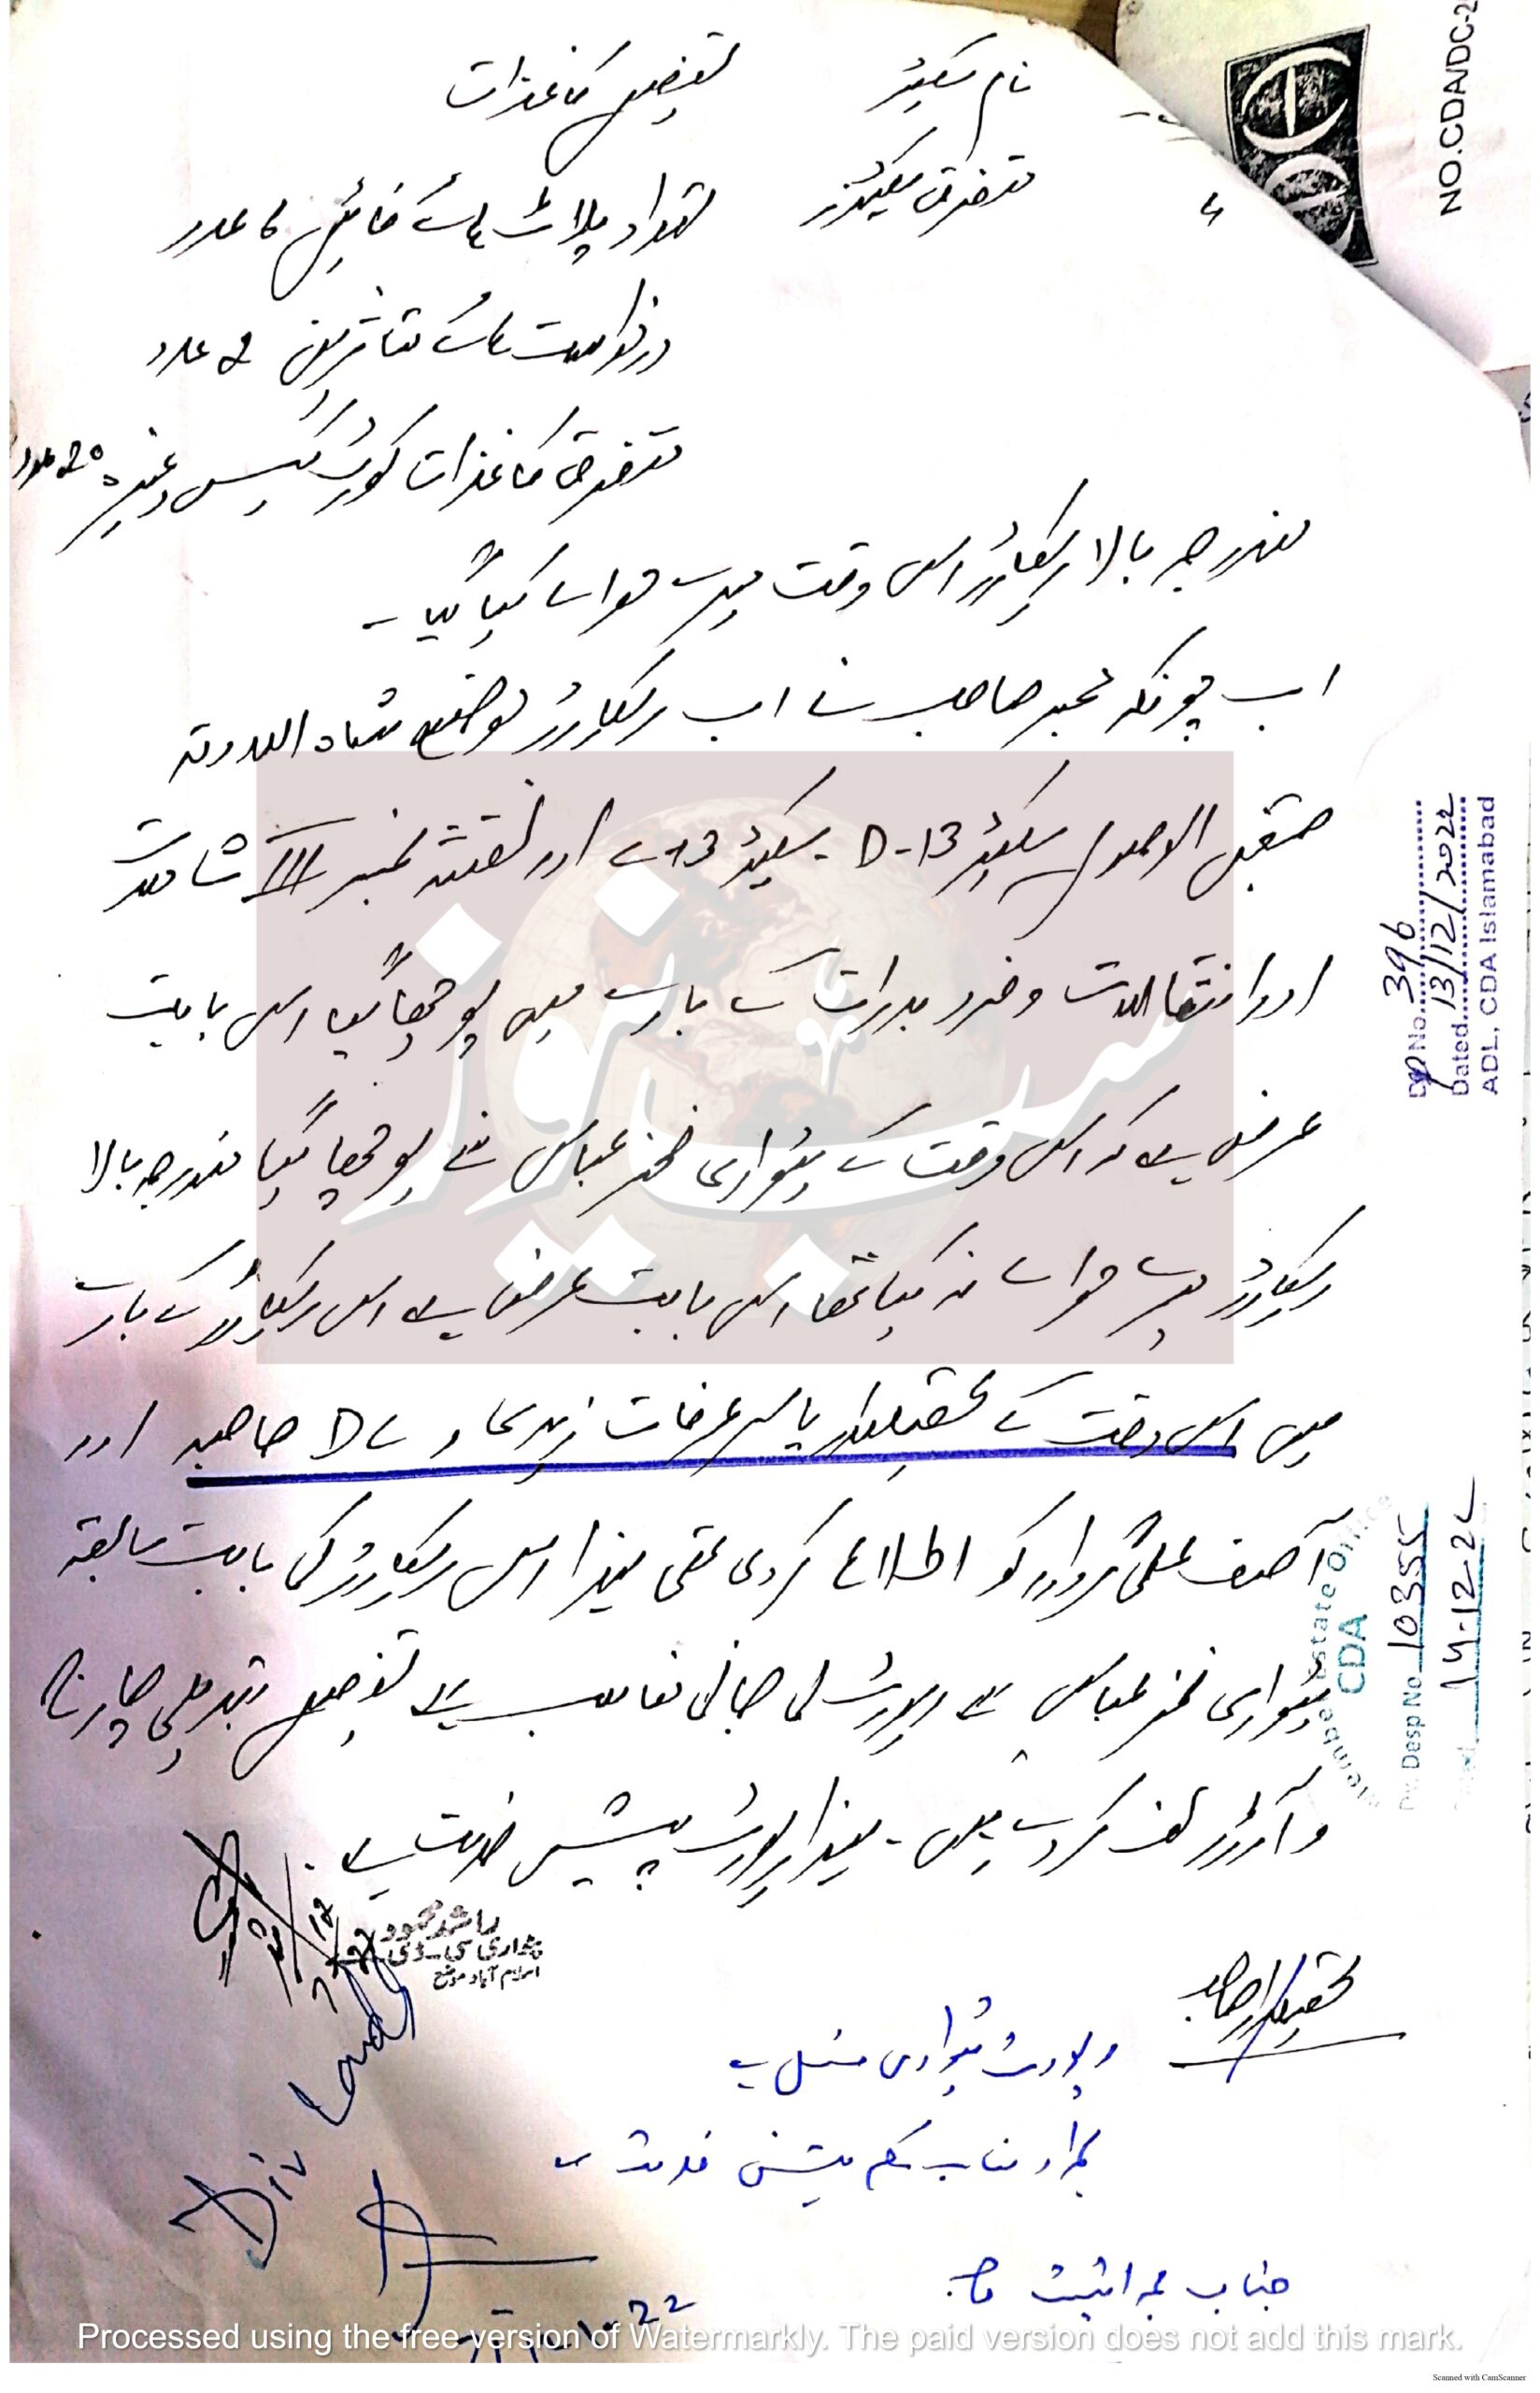 نام سیکٹر تفصیل کاغذات
متفرق سیکٹرز تعداد پلاٹ ہائے فائلیں 6 عدد
درخواست ہائے متاثرین 2 عدد
متفرق کاغذات کورٹ کیس وغیرہ 20 عدد
مندرجہ بالا ریکارڈ اس وقت میرے حوالے کیا گیا ۔
اب چونکہ مجھ صاحب نے اب ریکارڈ موضع شاہ اللہ دتہ
سیکٹر D-13 ۔ سیکٹر C-13 اور نقشہ نمبر III شاملات
اور انتقالات و فرد بدرات کے بارے میں پوچھا گیا اس بابت
عرض ہے کہ اس وقت کے پٹواری ظفر عباس سے پوچھا گیا مندرجہ بالا
ریکارڈ میرے حوالے نہ کیا تھا اس بابت عرض ہے اس ریکارڈ کے بارے
میں اس وقت کے تحصیلدار یاسر عرفات زیدی و DC صاحب اور
آصف علی گرداور کو اطلاع کردی تھی لہذا اس ریکارڈ کی بابت سابقہ
پٹواری ظفر عباس سے رپورٹ لی جانی مناسب ہے تفصیل تبدیلی چارج
و آرڈر لف کر دیے ہیں ۔ لہذا رپورٹ پیش خدمت ہے ۔
راشد محمود
پٹواری سی ۔ ڈی
اسلام آباد موضع
تحصیلدار صاحب
رپورٹ پٹواری منسلک ہے
بمراد مناسب حکم پیش خدمت ہے
جناب
Div Land
NO.CDA/DC-2
No. 396
Dated 13/12/2022
ADL, CDA Islamabad
Member Estate Office
CDA
Dy. Desp No 10355
14-12-22
سب نیوز
Processed using the free version of Watermarkly. The paid version does not add this mark.
Scanned with CamScanner